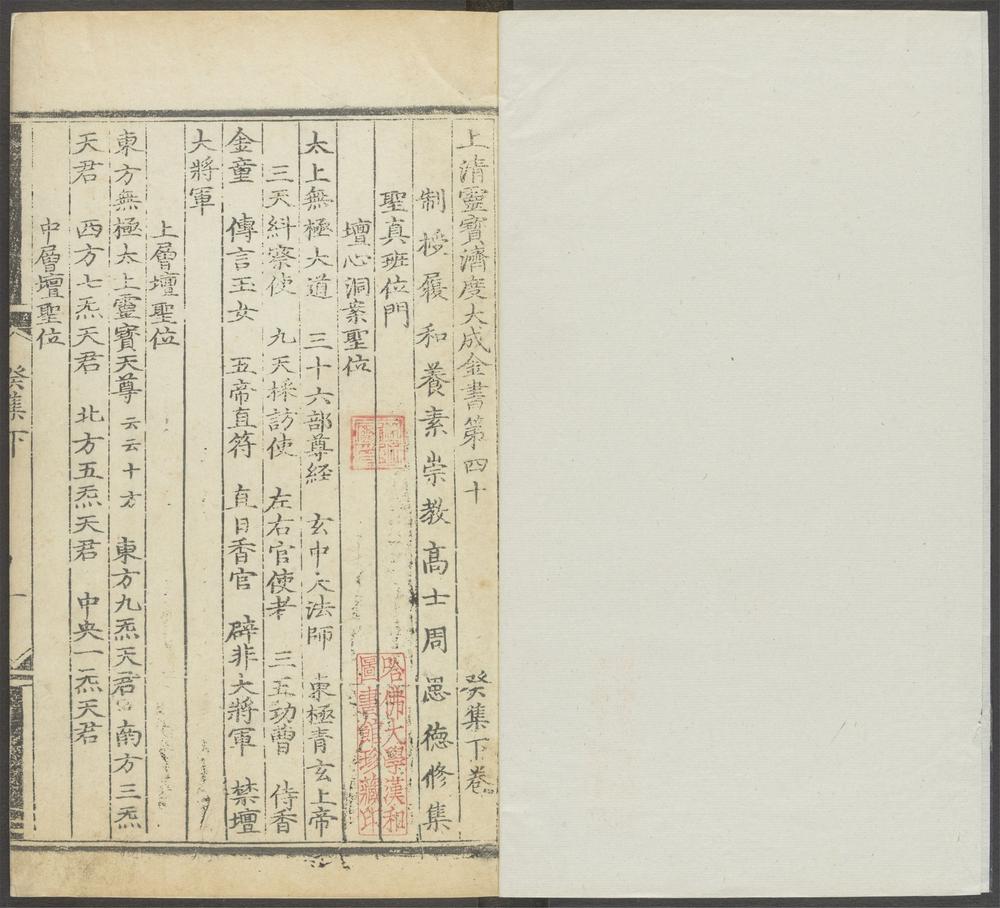 上清靈寶濟度大成金書第四十 癸集下卷
制授履和養素崇教高士周思德修集
聖真班位門
壇心洞案聖位
太上無極大道 三十六部尊経 玄中大法師 東極青玄上帝
三天糾察使 九天採訪使 左右官使者 三五功曹 侍香
金童 傳言玉女 五帝直符 直日香官 辟非大將軍 禁壇
大將軍
上層壇聖位
東方無極太上靈寶天尊云云十方 東方九炁天君 南方三炁
天君 西方七炁天君 北方五炁天君 中央一炁天君
中層壇聖位
癸集下
一
哈佛大學漢和
圖書館珍藏印